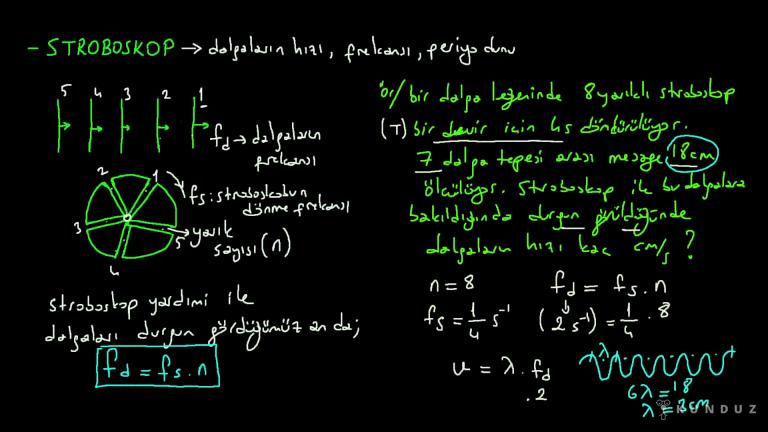 - STROBOSKOP → dalgaların hızı, frekansı, periyodunu
5 4 3 2 1
fd → dalgaların
frekansı
2 1
3
4
5
fs: stroboskobun
dönme frekansı
yarık
sayısı (n)
stroboskop yardımı ile
dalgaları durgun gördüğümüz anda;
fd = fs . n
ör/ bir dalga leğeninde 8 yarıklı stroboskop
(T) bir devir için 4s döndürülüyor.
7 dalga tepesi arası mesafe 18cm
ölçülüyor. Stroboskop ile bu dalgalara
bakıldığında durgun görüldüğünde
dalgaların hızı kaç cm/s ?
n = 8
fd = fs . n
fs = 1/4 s⁻¹
(2 s⁻¹) = 1/4 . 8
v = λ . fd
. 2
λ
6λ = 18
λ = 3cm
KUNDUZ